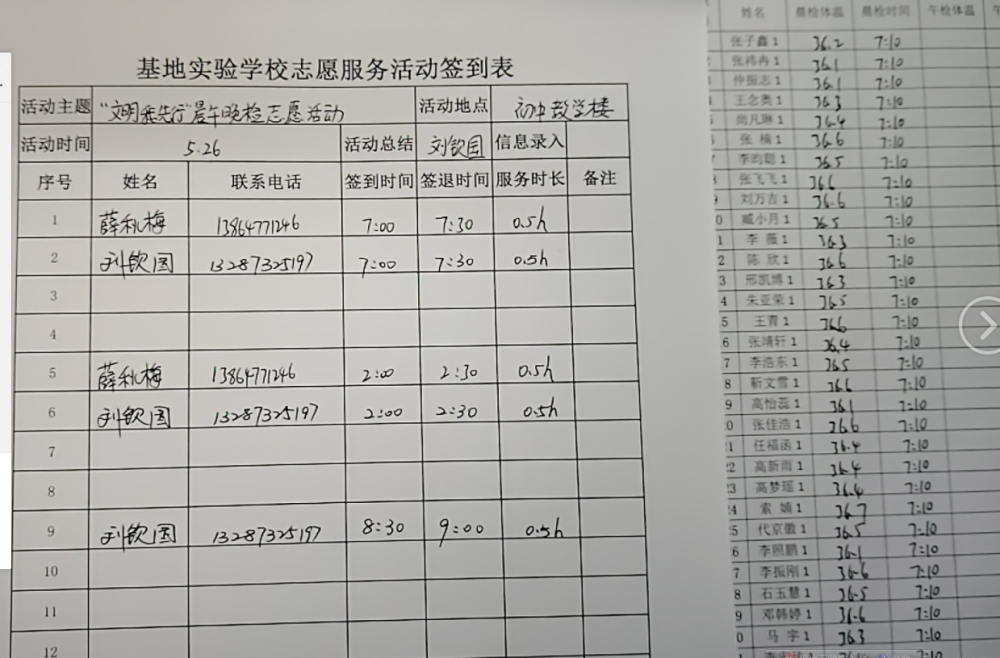 基地实验学校志愿服务活动签到表
活动主题 "文明我先行"晨午晚检志愿活动 活动地点 初中教学楼
活动时间 5.26 活动总结 刘钦国 信息录入
序号 姓名 联系电话 签到时间 签退时间 服务时长 备注
1 薛秋梅 13864771246 7:00 7:30 0.5h
2 刘钦国 13287325197 7:00 7:30 0.5h
3
4
5 薛秋梅 13864771246 2:00 2:30 0.5h
6 刘钦国 13287325197 2:00 2:30 0.5h
7
8
9 刘钦国 13287325197 8:30 9:00 0.5h
10
11
12
姓名 晨检体温 晨检时间 午检体温 午
张子鑫1 36.2 7:10
张祎冉1 36.1 7:10
仲振志1 36.1 7:10
王念奥1 36.3 7:10
尚凡琳1 36.4 7:10
张楠1 36.6 7:10
李昀聪1 36.5 7:10
张飞飞1 36.6 7:10
刘万吉1 36.6 7:10
臧小月1 36.5 7:10
1 李薇1 36.3 7:10
2 陈欣1 36.6 7:10
3 邢凯博1 36.3 7:10
4 朱亚荣1 36.5 7:10
5 王青1 36.6 7:10
6 张靖轩1 36.4 7:10
7 李浩东1 36.5 7:10
8 靳文雪1 36.6 7:10
9 高怡蕊1 36.1 7:10
0 张佳浩1 36.6 7:10
1 任福函1 36.4 7:10
2 高新雨1 36.4 7:10
3 高梦瑶1 36.4 7:10
4 索嫡1 36.7 7:10
5 代京徽1 36.5 7:10
6 李照鹏1 36.1 7:10
7 李振刚1 36.6 7:10
8 石玉慧1 36.5 7:10
9 邓韩婷1 36.6 7:10
0 马宇1 36.3 7:10
7:10